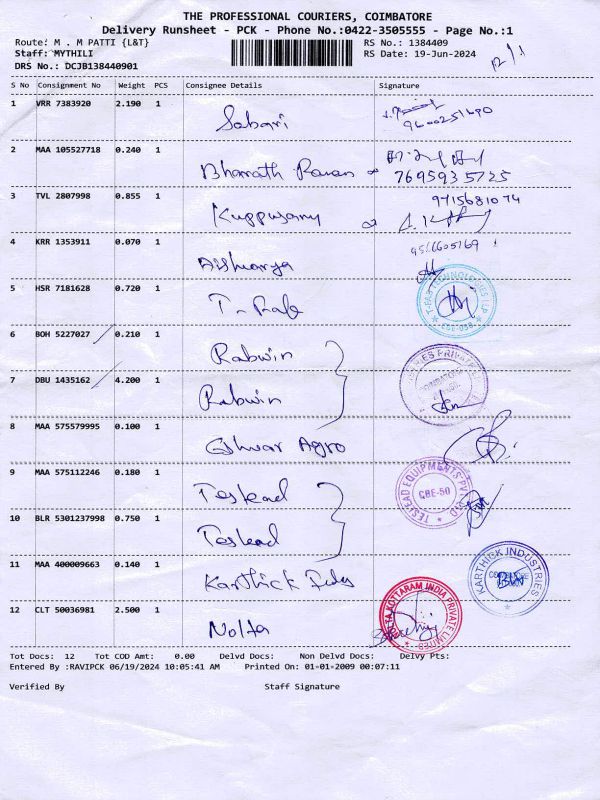 THE PROFESSIONAL COURIERS, COIMBATORE
Delivery Runsheet - PCK - Phone No.:0422-3505555 - Page No.:1
Route: M . M PATTI {L&T} RS No.: 1384409
Staff: MYTHILI RS Date: 19-Jun-2024
DRS No.: DCJB138440901
S No Consignment No Weight PCS Consignee Details Signature
1 VRR 7383920 2.190 1 Sabari 9600251690
2 MAA 105527718 0.240 1 Bharath Raran 7695935725
3 TVL 2807998 0.855 1 Kuppusamy 9715681074
4 KRR 1353911 0.070 1 Aishwarya 9566605169
5 HSR 7181628 0.720 1 T-Fab T-FAB TECHNOLOGIES LLP
6 BOH 5227027 0.210 1 Rabwin
7 DBU 1435162 4.200 1 Rabwin
8 MAA 575579995 0.100 1 Eshwar Agro
9 MAA 575112246 0.180 1 Teslead TESLEAD EQUIPMENTS PVT LTD CBE-50
10 BLR 5301237998 0.750 1 Teslead
11 MAA 400009663 0.140 1 Karthick Indus KARTHICK INDUSTRIES
12 CLT 50036981 2.500 1 Nolta NOLTA KOTTARAM INDIA PRIVATE LIMITED
Tot Docs: 12 Tot COD Amt: 0.00 Delvd Docs: Non Delvd Docs: Delvy Pts:
Entered By :RAVIPCK 06/19/2024 10:05:41 AM Printed On: 01-01-2009 00:07:11
Verified By Staff Signature